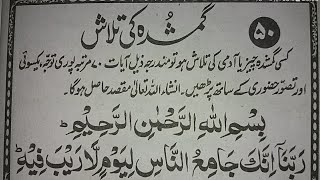 گمشدہ کی تلاش
۵۰
کسی گمشدہ چیز یا آدمی کی تلاش ہو تو مندرجہ ذیل آیات ۷۰ مرتبہ پوری توجہ، یکسوئی
اور تصوّرِ حضوری کے ساتھ پڑھیں۔ انشاء اللہ تعالیٰ مقصد حاصل ہوگا۔
بِسْمِ اللهِ الرَّحْمٰنِ الرَّحِيْمِ
رَبَّنَآ اِنَّكَ جَامِعُ النَّاسِ لِيَوْمٍ لَّا رَيْبَ فِيْهِ ط